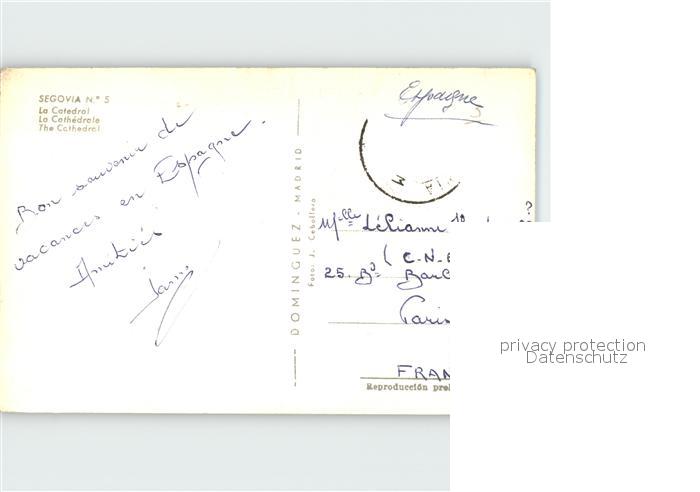 SEGOVIA N.º 5
La Catedral
La Cathédrale
The Cathedral
Bon souvenir de
vacances en Espagne.
Amitiés
DOMINGUEZ - MADRID
Foto: J. Ceballero
Espagne
?
Mlle Lélianne
(C.N.E
25. Bd Barb
Paris
FRAN
Reproducción pro
privacy protection
Datenschutz